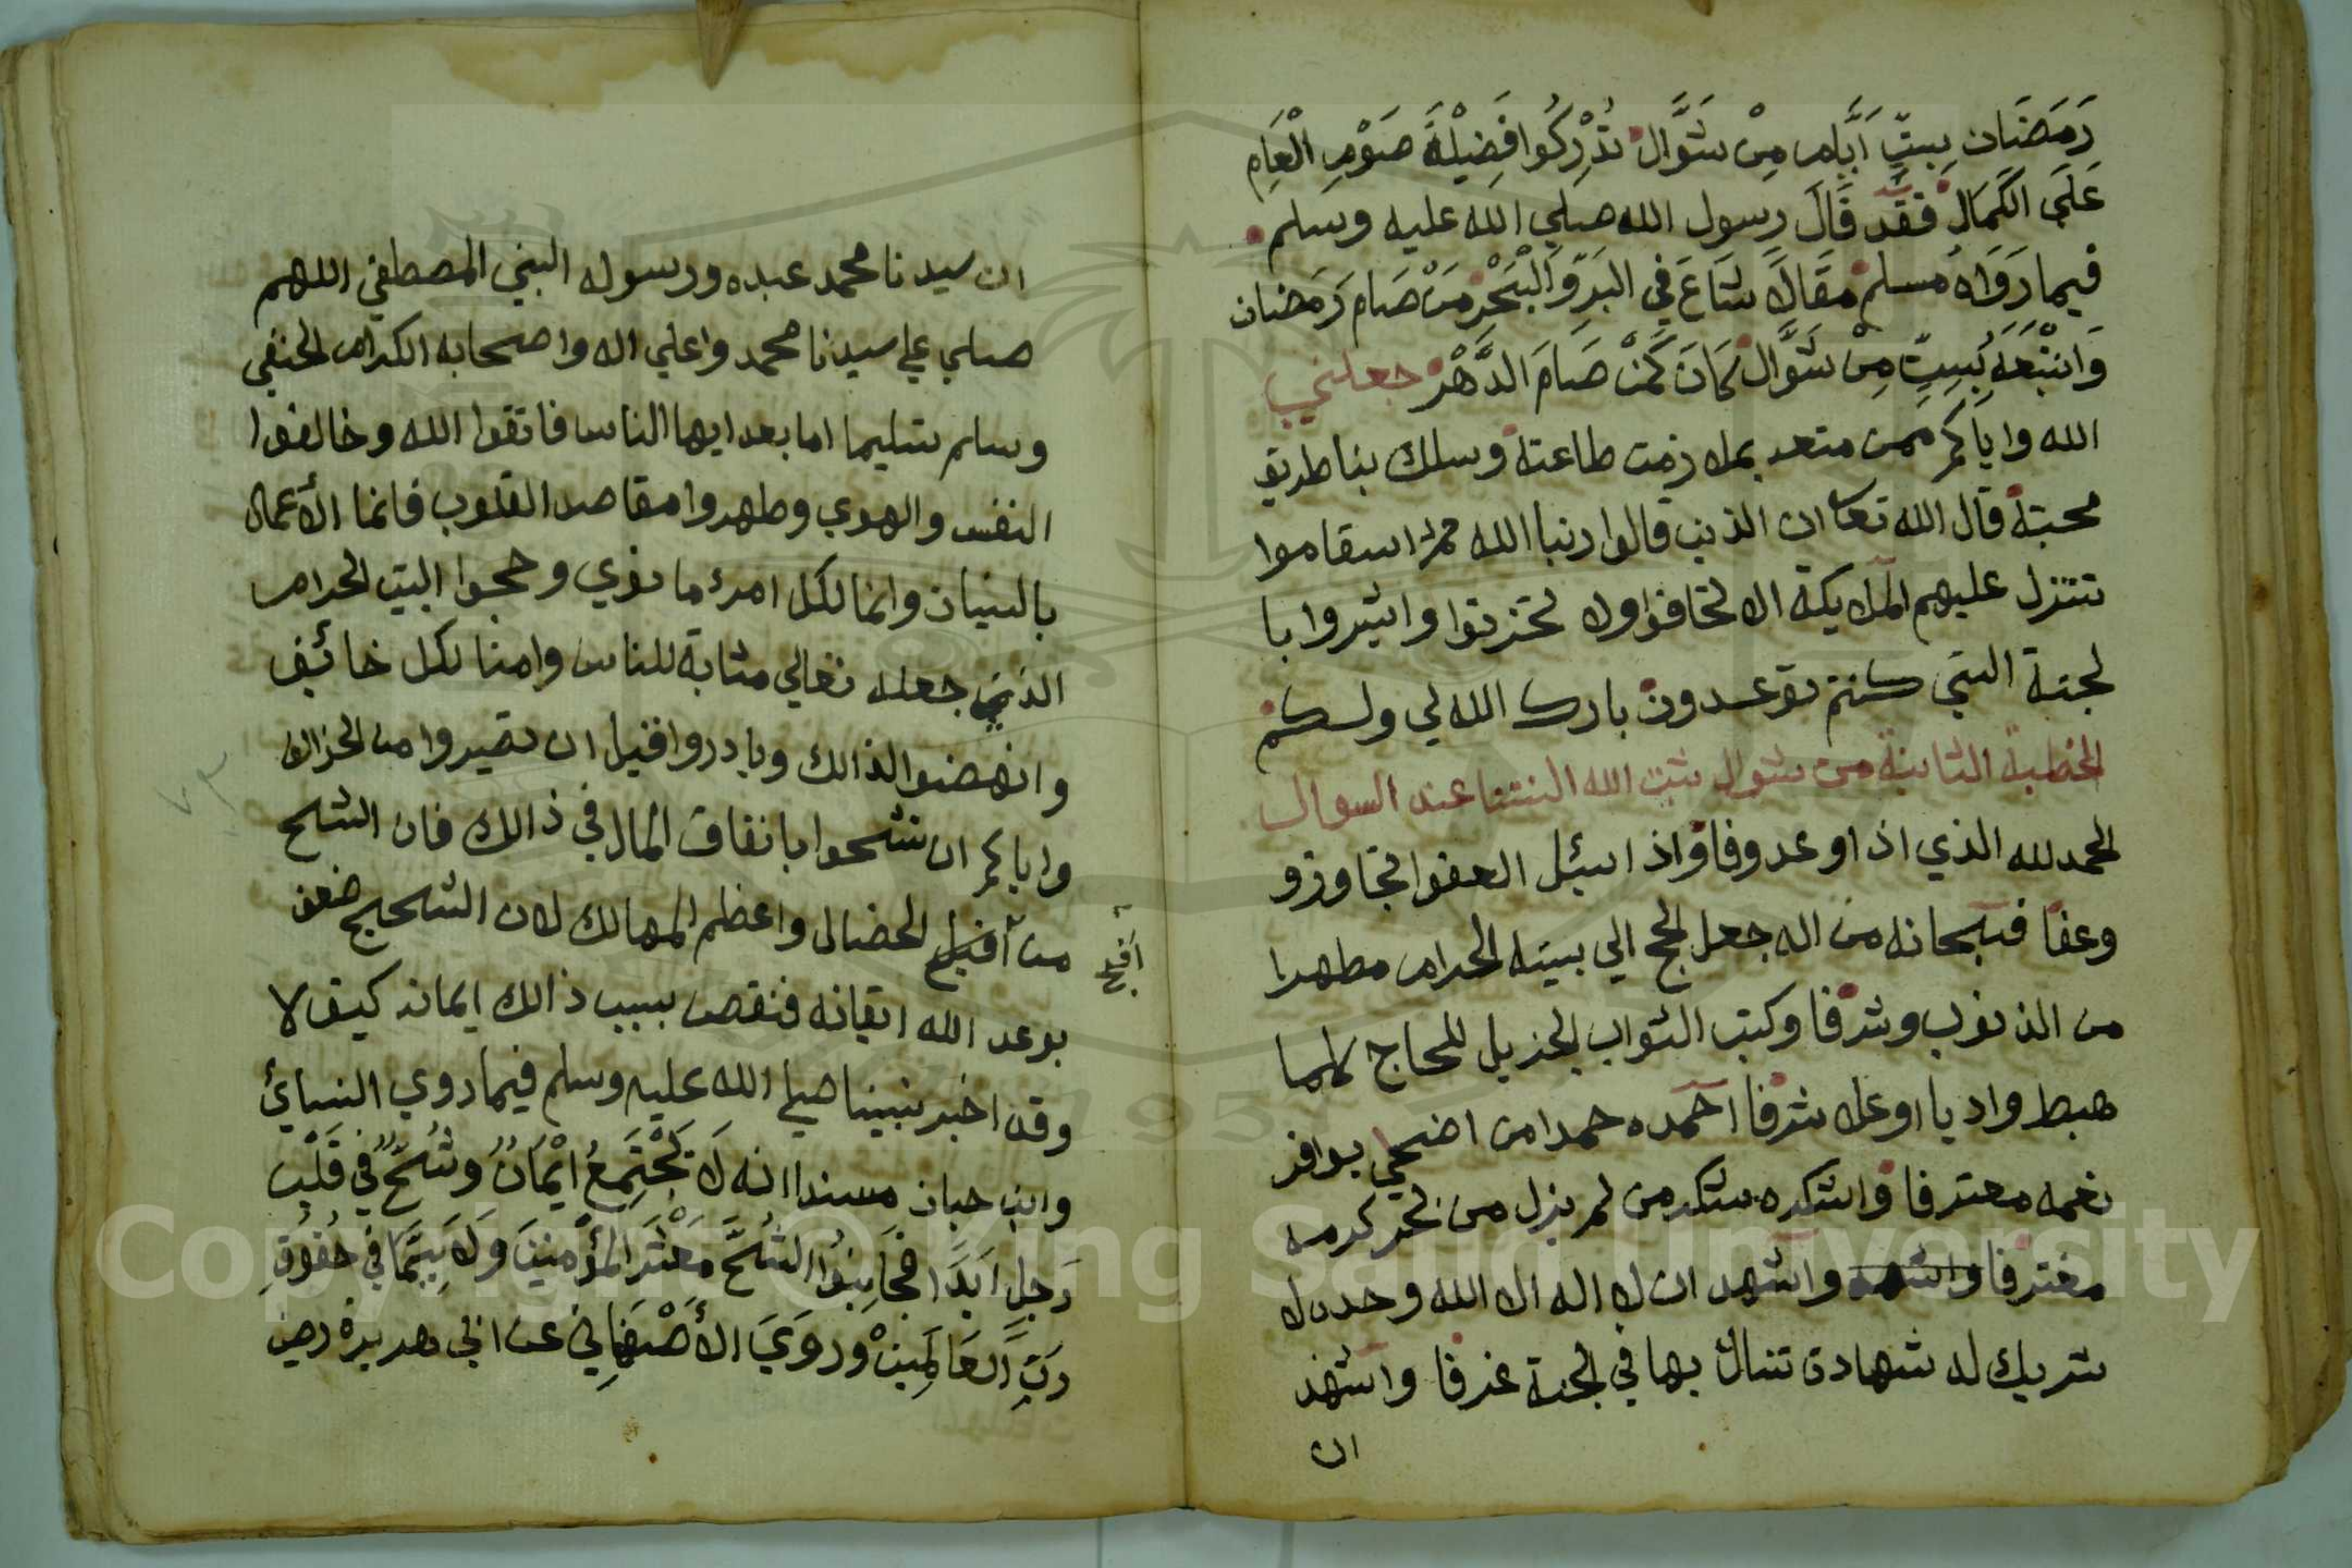 رَمَضَان بِسِتِّ اَيَّامٍ مِنْ شَوَّال تُدْرِكُوا فَضِيْلَةَ صَوْمِ الْعَامِ
عَلَي الكَمَال فقَد قَالَ رسول الله صلي الله عليه وسلم
فيما رَوَاهُ مسلم مقَالاً شَاعَ في البَرِّ وَالْبَحْرِ مَنْ صَام رَمَضان
وَاتْبَعَهُ بِسِتٍّ مِنْ شَوَّال كَانَ كَمَنْ صَامَ الدَّهْر جعلني
الله واياكم ممن بملازمت طاعته وسلك بنا طريق
محبته قال الله تعا ان الذين قالوا ربنا الله ثم استقاموا
تتنزل عليهم الملايكة الا تخافوا ولا تحزنوا وابشروا با
لجنة التي كنتم توعدون بارك الله لي ولكم
الخطبة الثانية من شوال ثبت الله السنتنا عند السوال
الحمد لله الذي اذا وعد وفا واذا اسئل العفوا تجاوز و
وعفا فسبحانه من اله جعل الحج الي بيته الحرام مطهرا
من الذنوب وشرفا وكتب الثواب الجزيل للحاج كلما
هبط واديا او علا شرفا احمده حمدا من اضحي بوافر
نعمه معترفا واشكره شكر من لم يزل من بحر كرمه
مغترفا واشهد واشهد ان لا اله الا الله وحده لا
شريك له شهادة تنال بها في الجنة غرفا واشهد
ان
ان سيدنا محمد عبده ورسوله النبي المصطفي اللهم
صلي علي سيدنا محمد واعلي اله واصحابه الكرام الحنفي
وسلم تسليما اما بعد ايها الناس فاتقوا الله وخالفوا
النفس والهوي وطهروا مقاصد القلوب فانما الأعمال
بالنيات وانما لكل امرء ما نوي وحجوا البيت الحرام
الذي جعله تعالي مثابة للناس وامنا لكل خائف
وانهضوا لذالك وبادروا قبل ان تصيروا من
واياكم ان تشحوا بانفاق المال في ذالك فان الشح
من اقبح الخصال واعظم المهالك لان الشحيح ضعف
اقبح
بوعد الله ايقانه فنقص بسبب ذالك ايمانه كيف لا
وقد اخبر نبينا صلي الله عليه وسلم فيما روي النسائ
وابن حبان مسندا انه لَا يَجْتَمِعُ ايْمَانٌ وشُحٌّ في قَلْبِ
رَجلٍ اَبَدًا فَجَانِبُوا الشُّحَّ مَعْشَرَ المؤمنينَ وَلَا سِيَّمَا في حُقُوقِ
رَبِّ العَالَمِينْ وَرَوَيَ الأَصْبَهَانِي عن ابي هريرة رضي
Copyright © King Saud University
1957